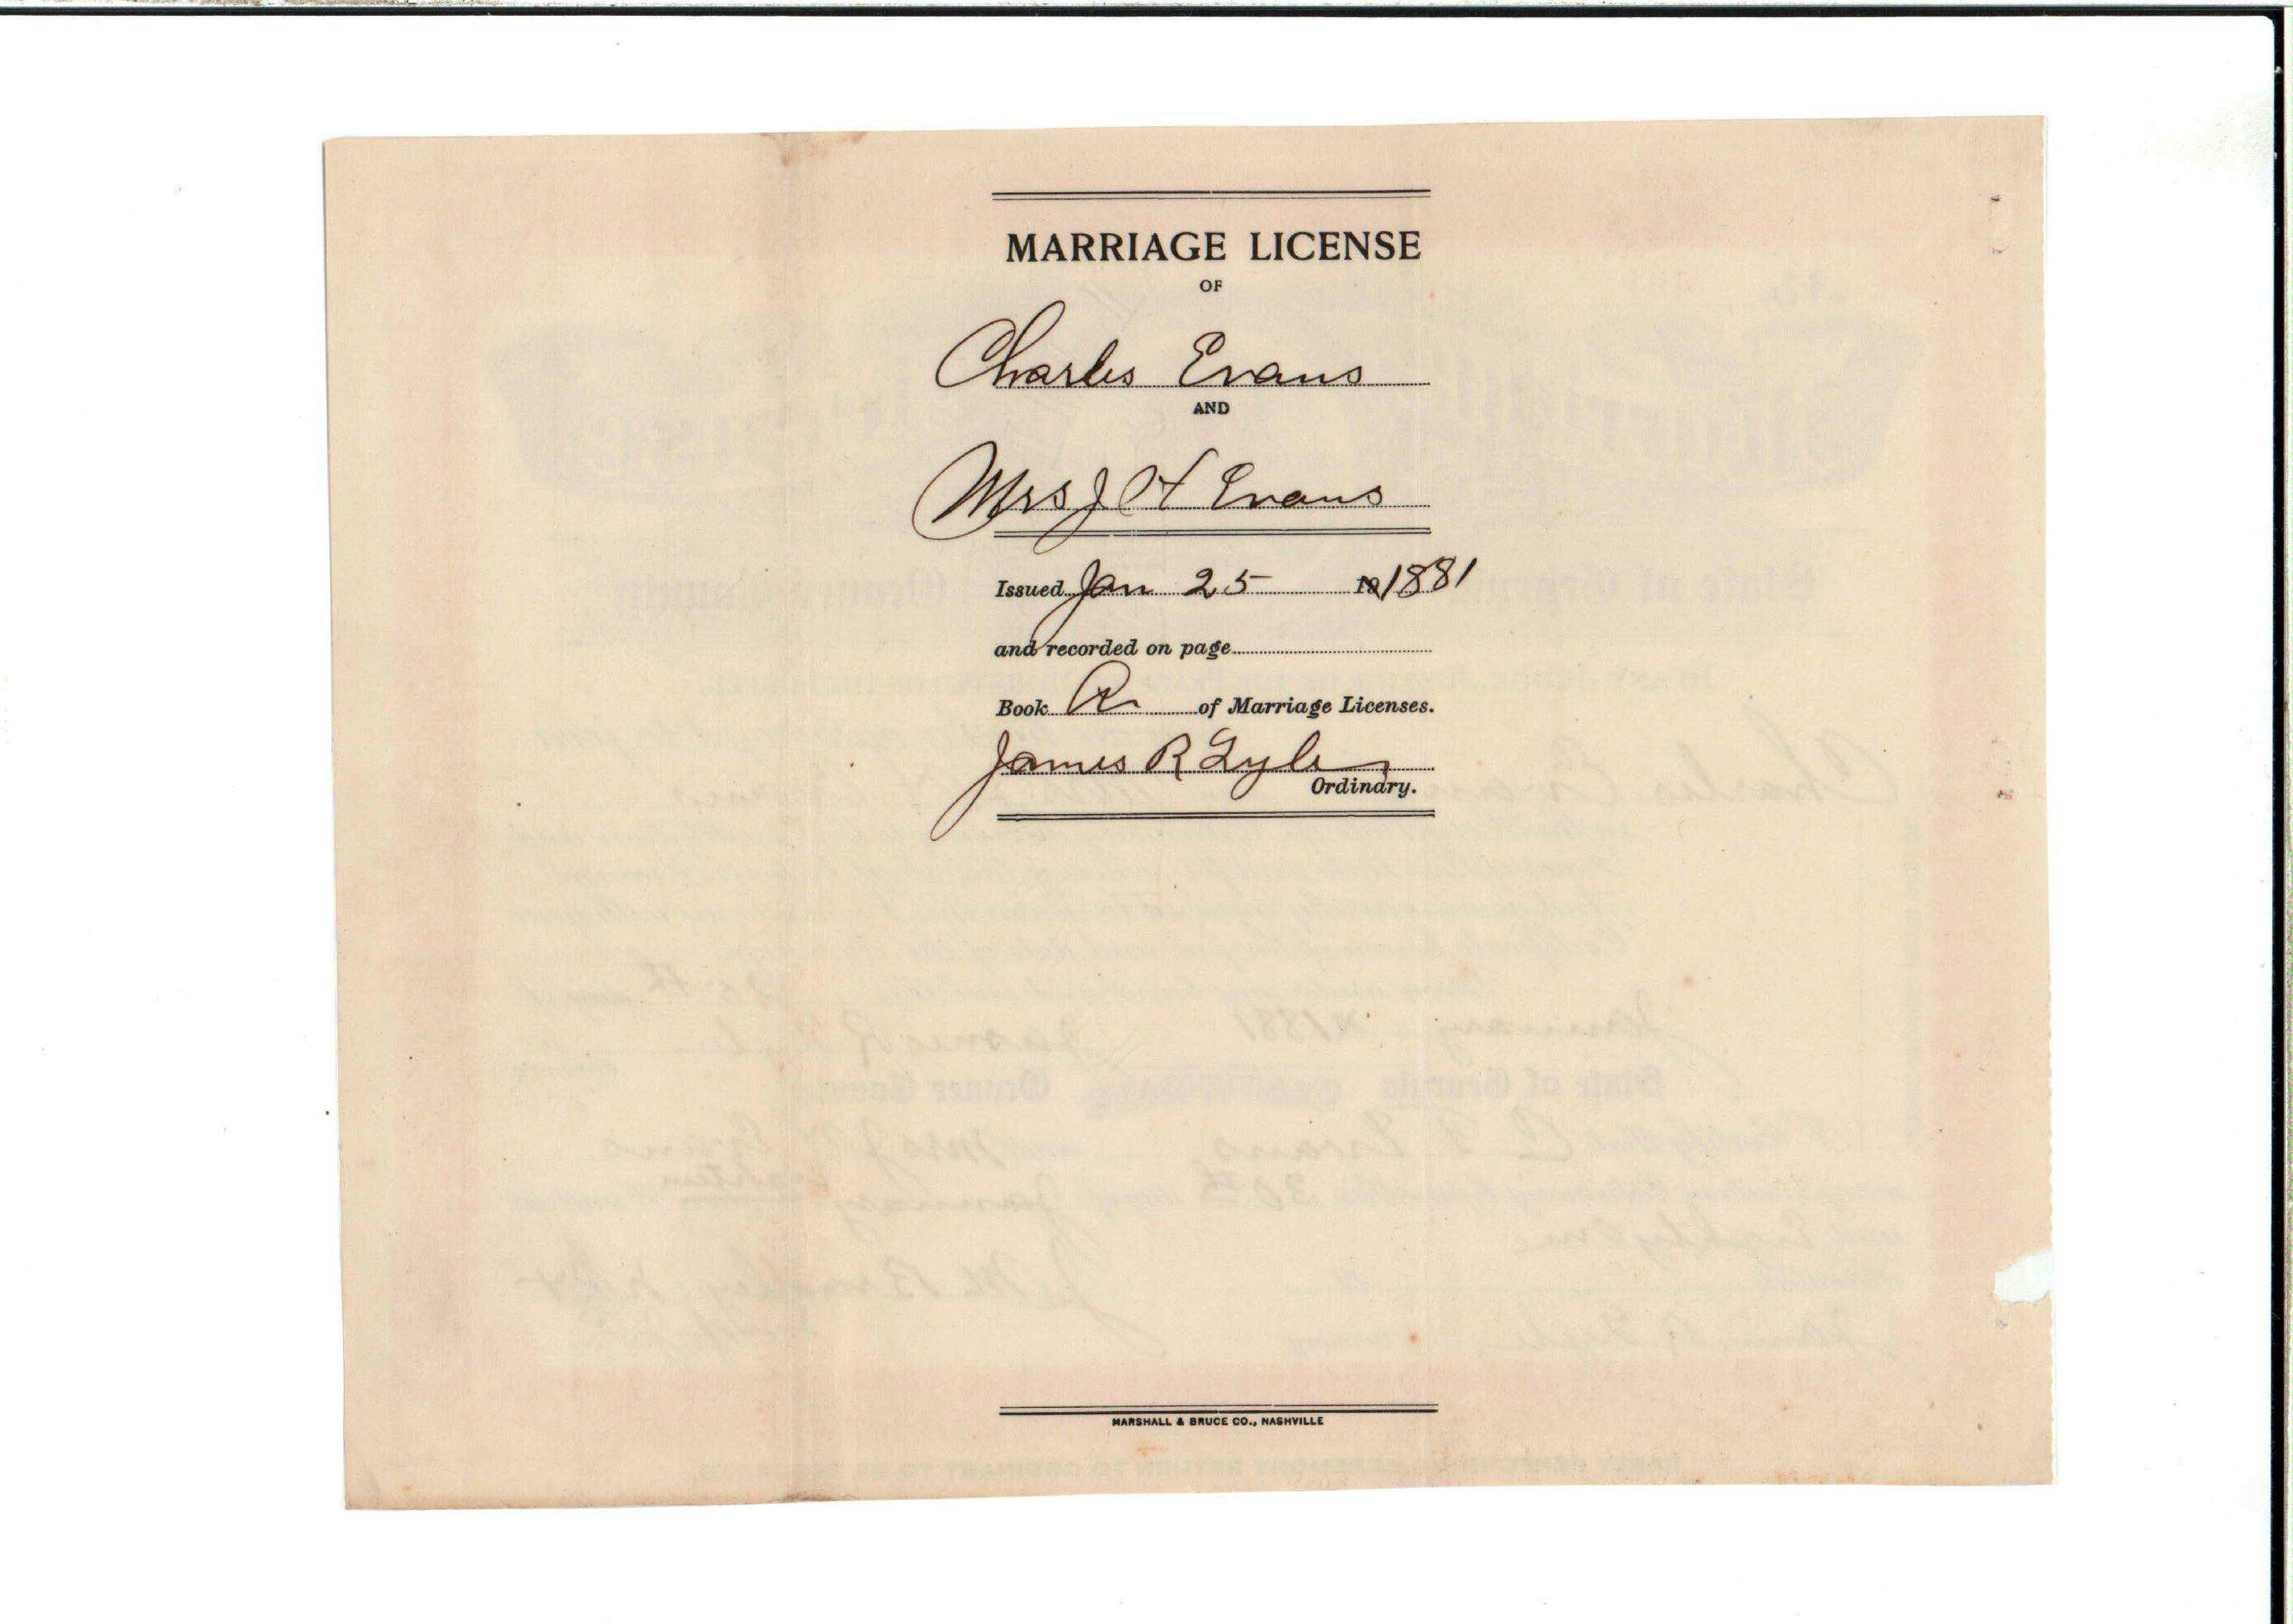 MARRIAGE LICENSE
OF
Charles Evans
AND
Mrs J H Evans
Issued Jan 25 19 1881
and recorded on page
Book A of Marriage Licenses.
James R Lyle
Ordinary.
MARSHALL & BRUCE CO., NASHVILLE